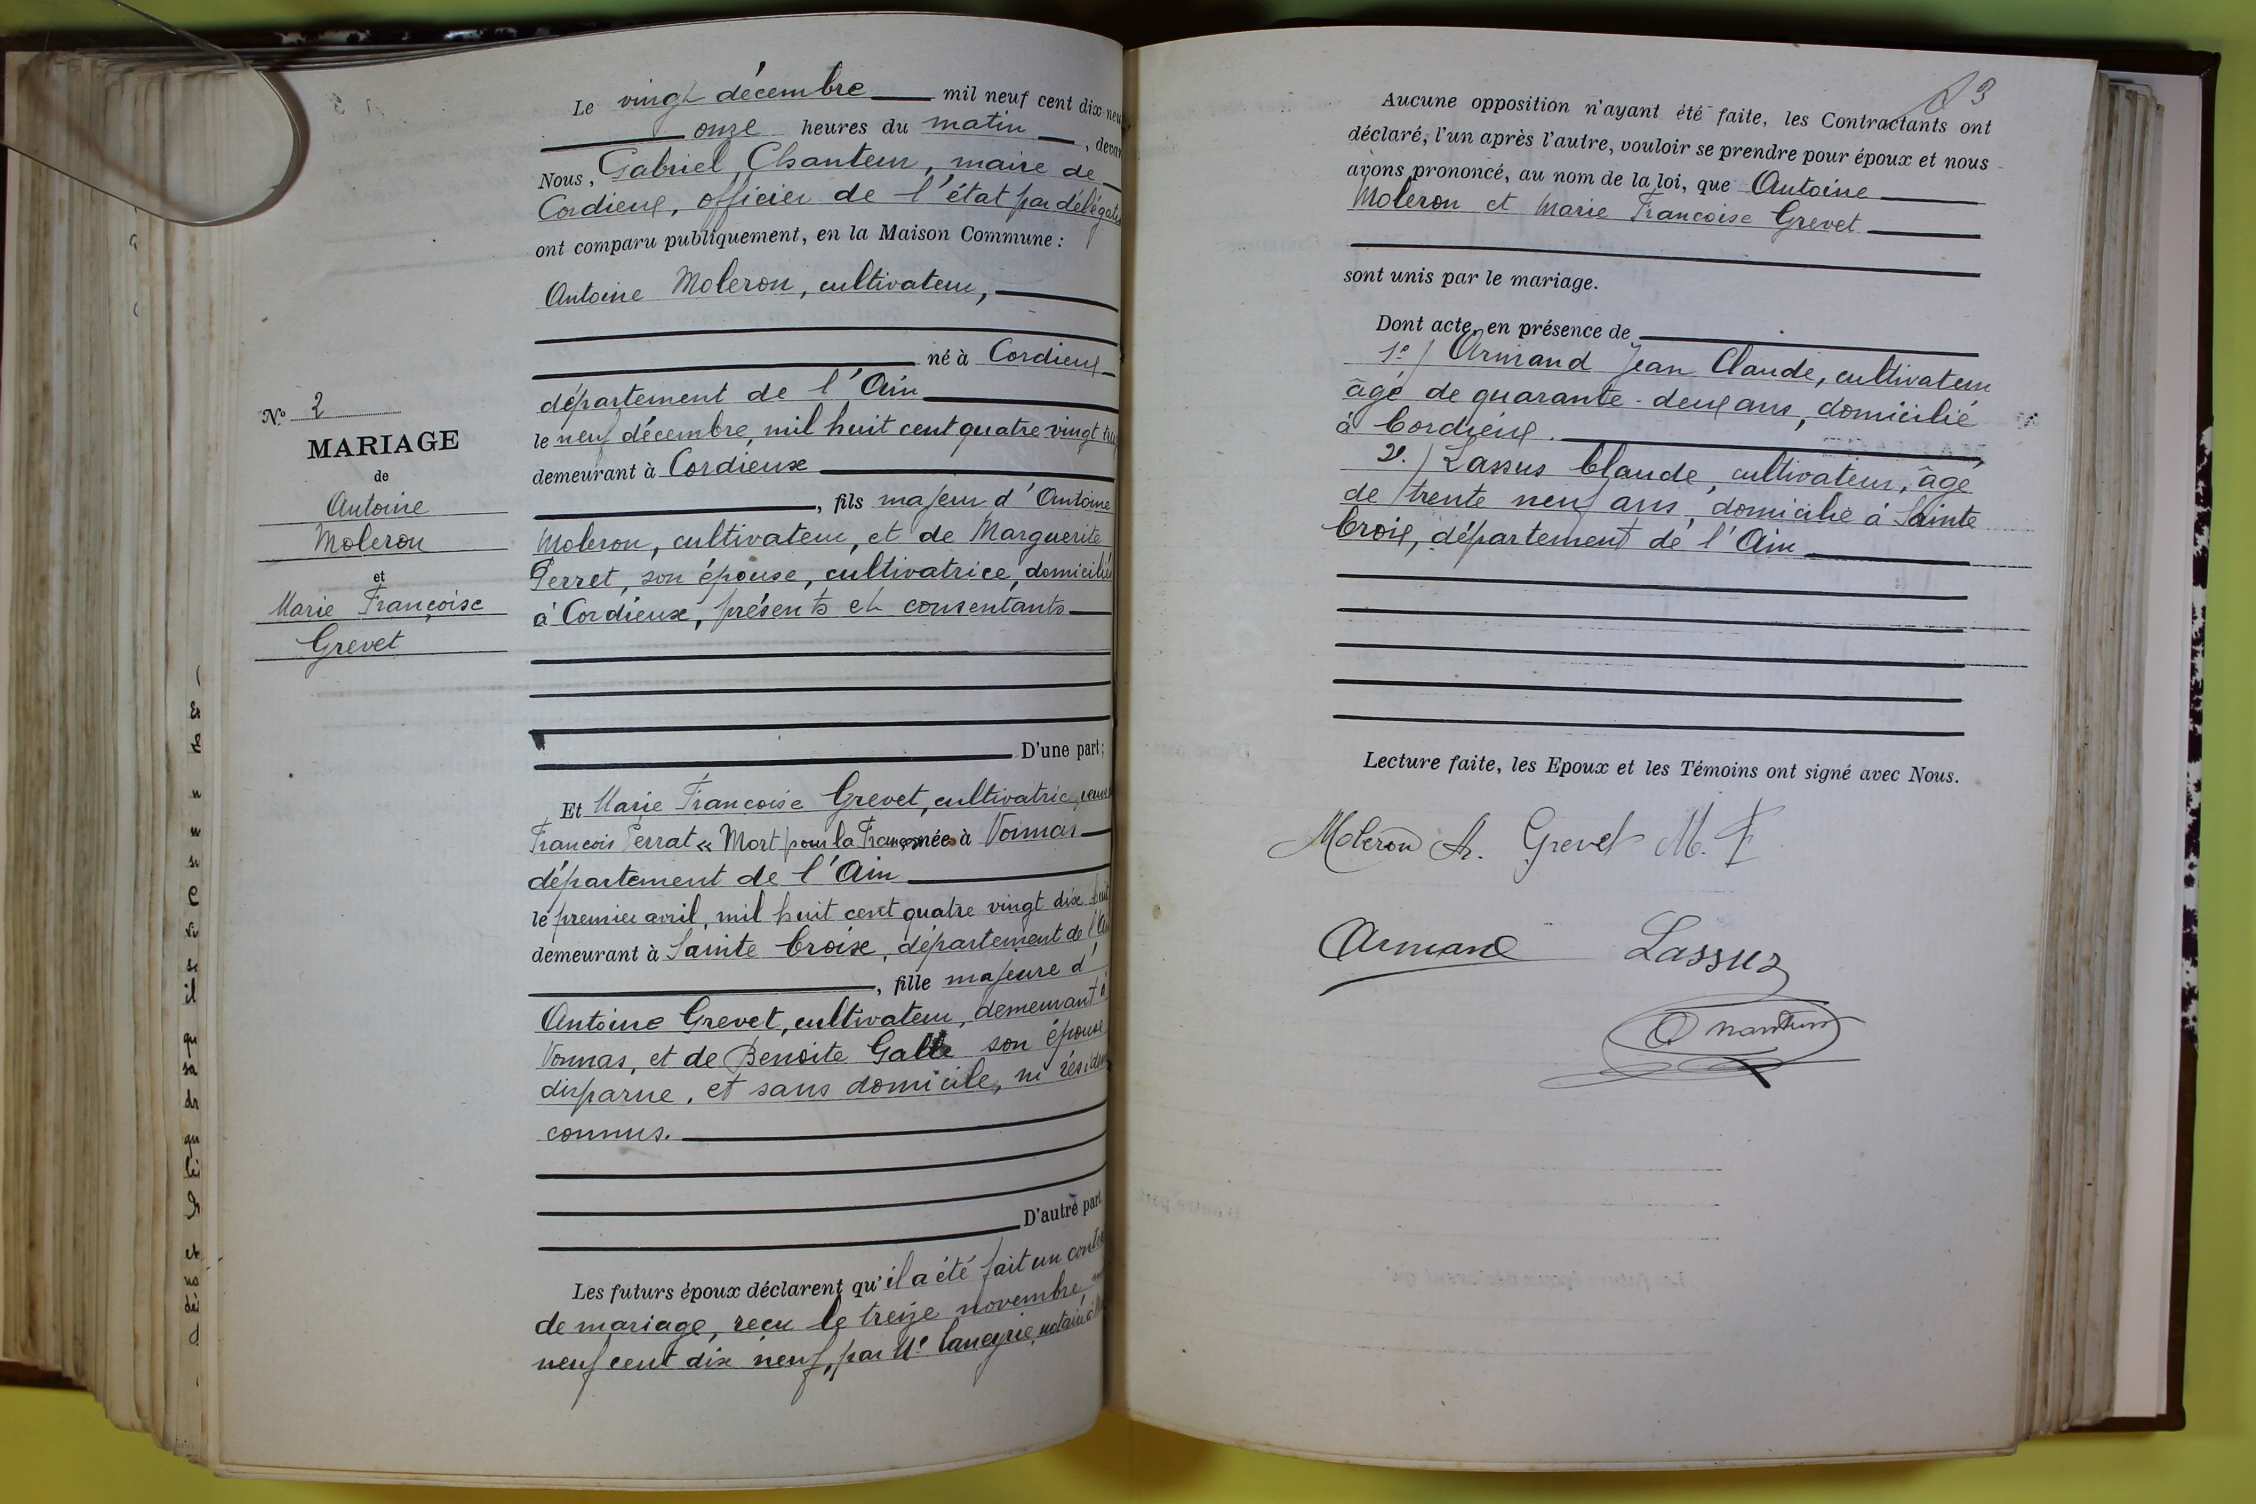 Le vingt décembre mil neuf cent dix neu
onze heures du matin, devan
Nous, Gabriel Chanteur, maire de
Cordieux, officier de l'état par délégati
ont comparu publiquement, en la Maison Commune :
Antoine Moleron, cultivateur,
né à Cordieux
département de l'Ain
le neuf décembre, mil huit cent quatre vingt
demeurant à Cordieux
, fils majeur d'Antoine
Moleron, cultivateur, et de Marguerite
Perret, son épouse, cultivatrice, domiciliés
à Cordieux, présents et consentants
D'une part;
No 2
MARIAGE
de
Antoine
Moleron
et
Marie Françoise
Grevet
Et Marie Françoise Grevet, cultivatric, veuve
François Perrat « Mort pour la France » née à Vonnas
département de l'Ain
le premier avril, mil huit cent quatre vingt dix huit
demeurant à Sainte Croix, département de l'Ai
, fille majeure d'
Antoine Grevet, cultivateur, demeurant à
Vonnas, et de Benoite Galle son épouse
disparue, et sans domicile, ni résiden
connus.
D'autre part
Les futurs époux déclarent qu'il a été fait un contra
de mariage, reçu le treize novembre
neuf cent dix neuf, par Me Laneyrie, notaire à
93
Aucune opposition n'ayant été faite, les Contractants ont
déclaré, l'un après l'autre, vouloir se prendre pour époux et nous
avons prononcé, au nom de la loi, que Antoine
Moleron et Marie Françoise Grevet
sont unis par le mariage.
Dont acte, en présence de
1º/ Armand Jean Claude, cultivateur
âgé de quarante-deux ans, domicilié
à Cordieux.
2º/ Lassus Claude, cultivateur, âgé
de trente neuf ans, domicilié à Sainte
Croix, département de l'Ain
Lecture faite, les Epoux et les Témoins ont signé avec Nous.
Moleron A. Grevet M. F
Armand Lassus
Chanteur